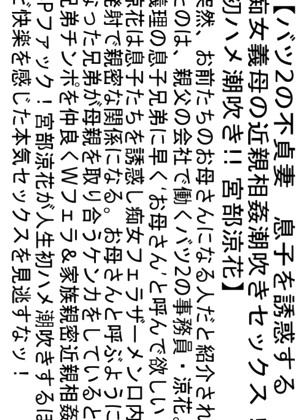 【バツ2の不貞妻　息子を誘惑する
痴女義母の近親相姦潮吹きセックス！
初ハメ潮吹き!! 宮部涼花】
突然、お前たちのお母さんになる人だと紹介され
たのは、親父の会社で働くバツ2の事務員・涼花。
義理の息子兄弟に早く‘お母さん’と呼んで欲しい
涼花は息子たちを誘惑し痴女フェラザーメン口内
発射で親密な関係になる。お母さんと呼ぶように
なった兄弟が母親を取り合うケンカをしていると
兄弟チンポを仲良くWフェラ&家族親密近親相姦
Pファック！宮部涼花が人生初ハメ潮吹きするほ
ど快楽を感じた本気セックスを見逃すなッ！